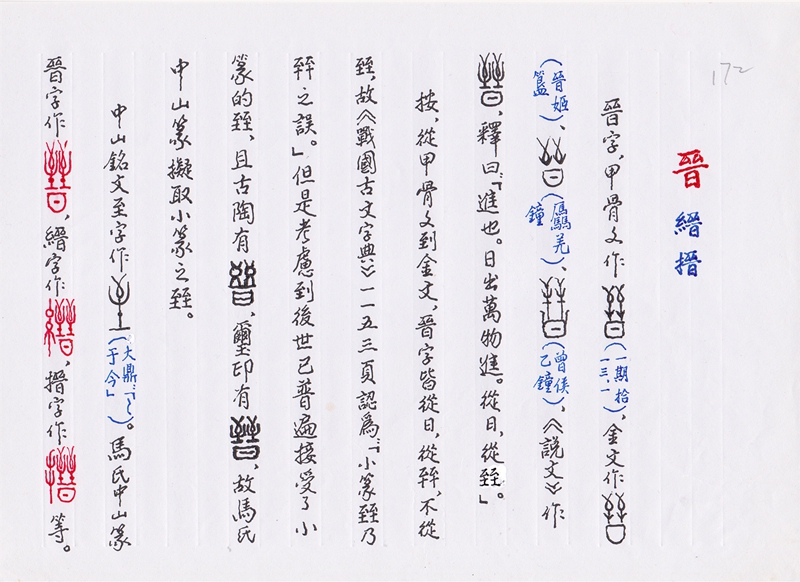 172
晉 縉 搢
晉字，甲骨文作（一期拾一三、一），金文作
（晉姬簋）、（驫羌鐘）、（曾侯乙鐘）、《說文》作
，釋曰：「進也。日出萬物進。從日，從臸」。
按，從甲骨文到金文，晉字皆從日，從䇍，不從
臸，故《戰國古文字典》一一五三頁認爲：「小篆臸乃
䇍之誤。」但是考慮到後世已普遍接受了小
篆的臸，且古陶有，璽印有，故馬氏
中山篆擬取小篆之臸。
中山銘文至字作（大鼎：「〜于今」）。馬氏中山篆
晉字作，縉字作，搢字作等。